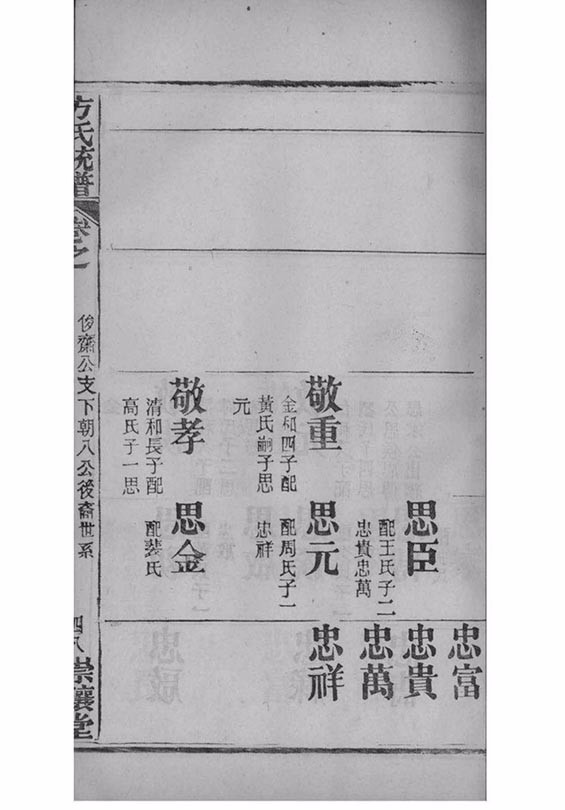 忠富
思臣
配王氏子二
忠貴忠萬
忠貴
忠萬
敬重
金和四子配
黃氏嗣子思
元
思元
配周氏子一
忠祥
忠祥
敬孝
清和長子配
高氏子一思
思金
配裴氏
方氏統譜
卷之
俊齋公支下朝八公後裔世系
四八
崇讓堂